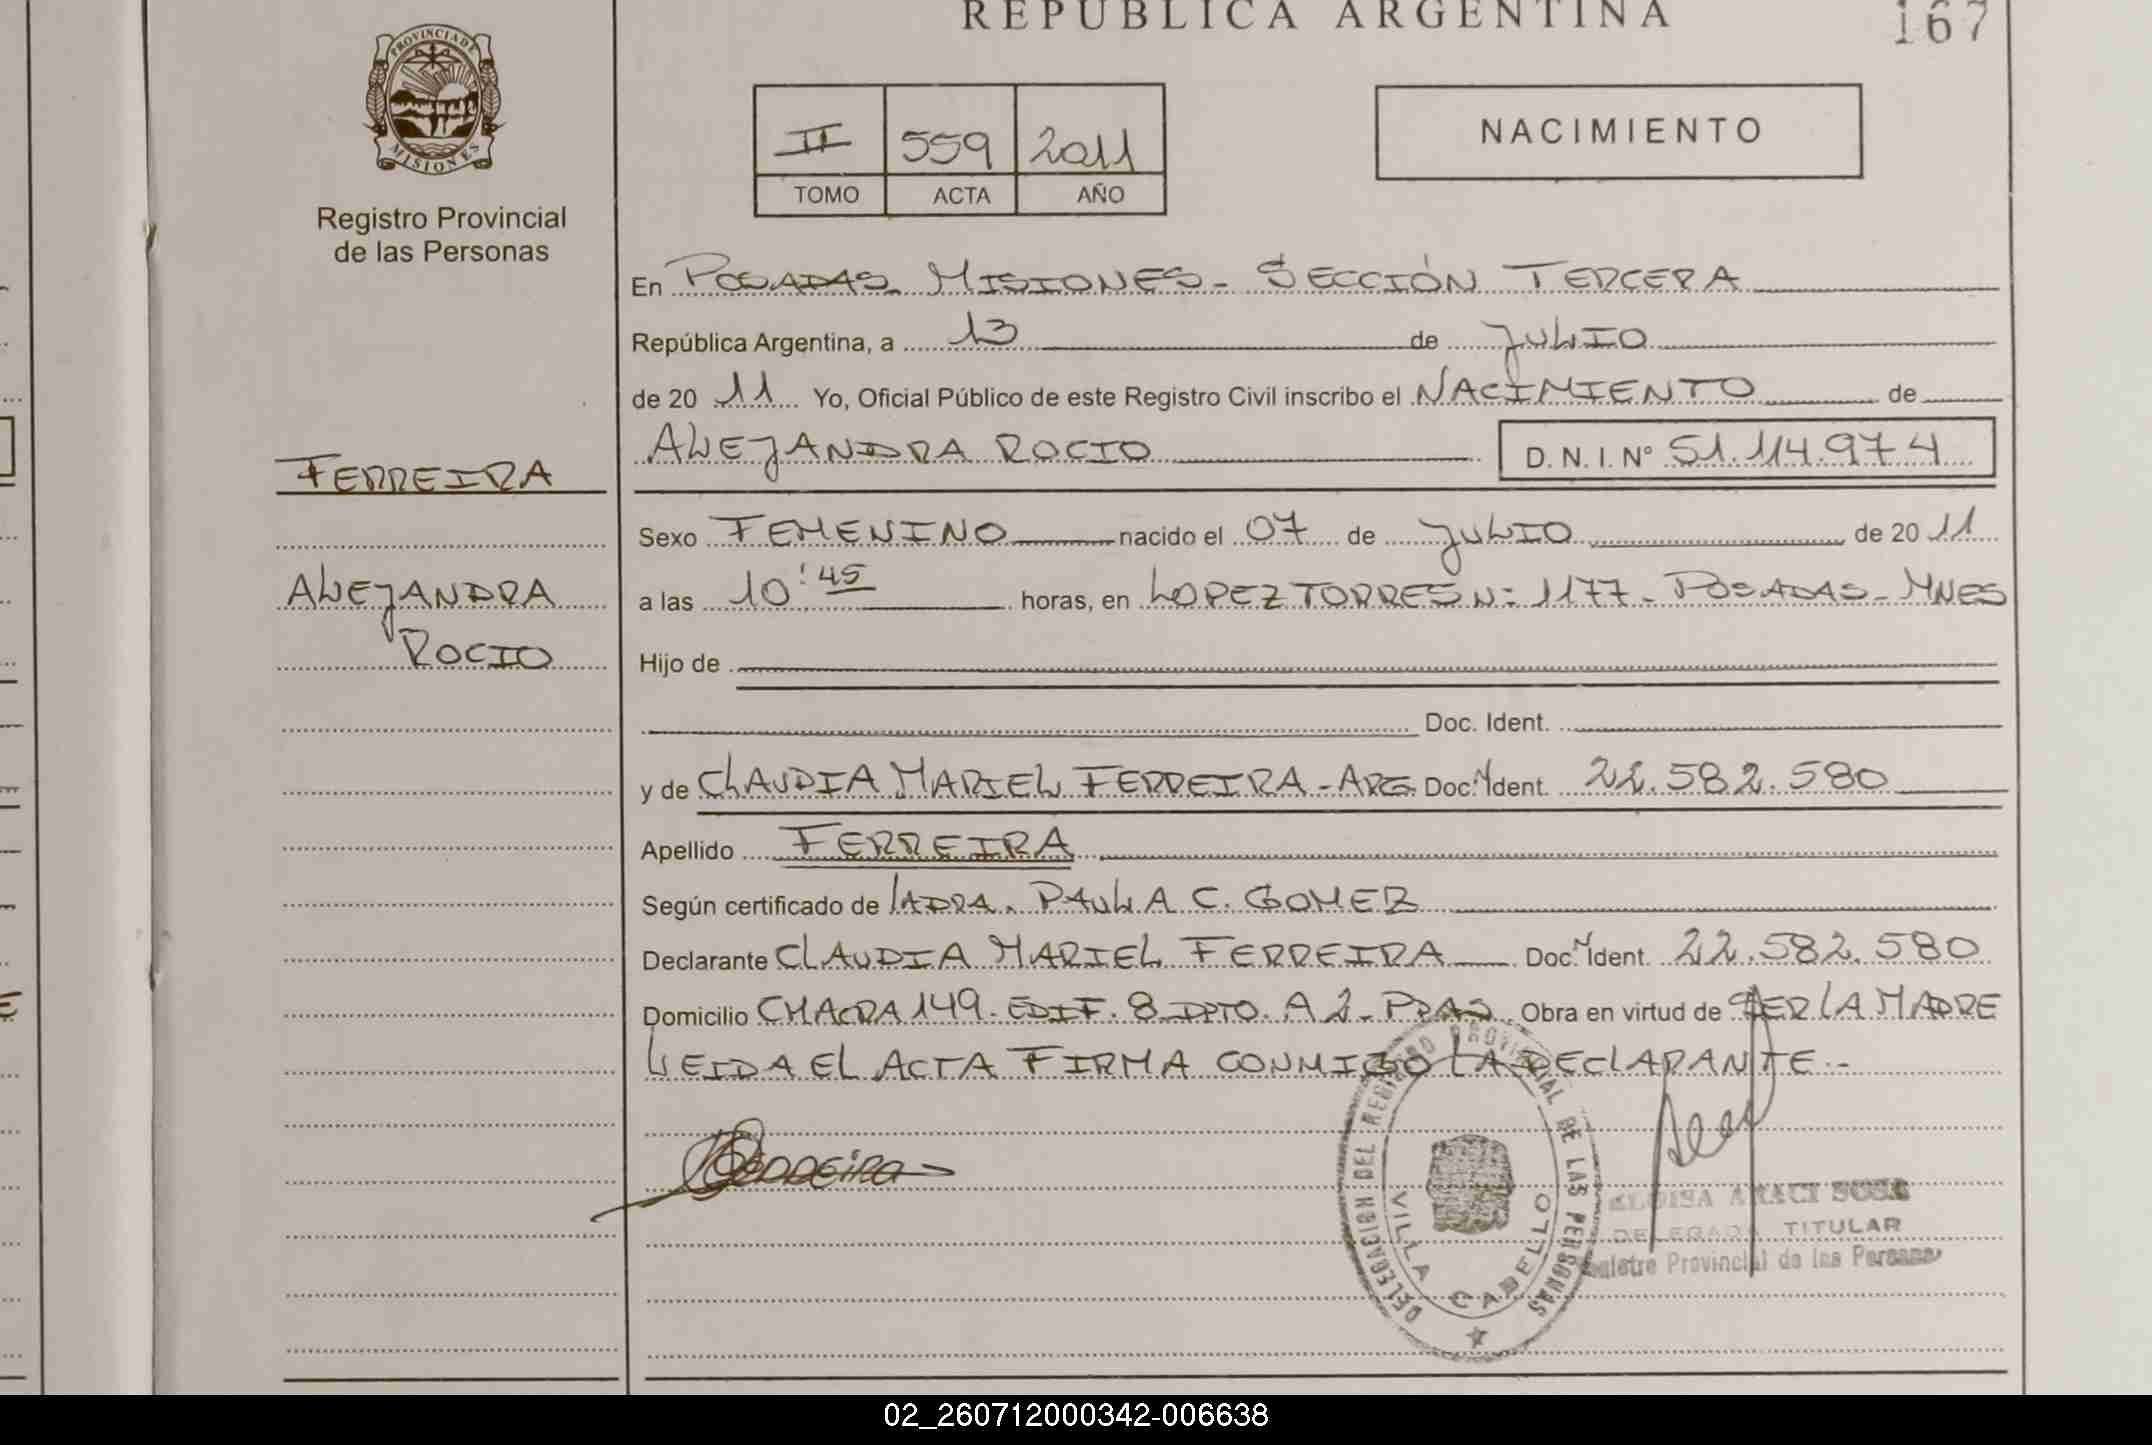 REPUBLICA ARGENTINA
167
PROVINCIA DE
MISIONES
Registro Provincial
de las Personas
II 559 2011
TOMO ACTA AÑO
NACIMIENTO
En POSADAS MISIONES - SECCIÓN TERCERA
República Argentina, a 13 de JULIO
de 20 11 Yo, Oficial Público de este Registro Civil inscribo el NACIMIENTO de
ALEJANDRA ROCIO D. N. I. N° 51.114.974
FERREIRA
ALEJANDRA
ROCIO
Sexo FEMENINO nacido el 07 de JULIO de 20 11
a las 10:45 horas, en LOPEZ TORRES N: 1177 - POSADAS - MNES
Hijo de
Doc. Ident.
y de CLAUDIA MARIEL FERREIRA - ARG Doc. N Ident. 22.582.580
Apellido FERREIRA
Según certificado de LA DRA. PAULA C. GOMEZ
Declarante CLAUDIA MARIEL FERREIRA Doc. N Ident. 22.582.580
Domicilio CHACRA 149 - EDIF. 8 DPTO. A 2 - PDAS Obra en virtud de SER LA MADRE
LEIDA EL ACTA FIRMA CONMIGO LA DECLARANTE.-
Ferreira
DELEGACION DEL REGISTRO PROVINCIAL DE LAS PERSONAS
VILLA CABELLO
ELOISA ARACI SOSA
DELEGADA TITULAR
Registro Provincial de las Personas
02_260712000342-006638